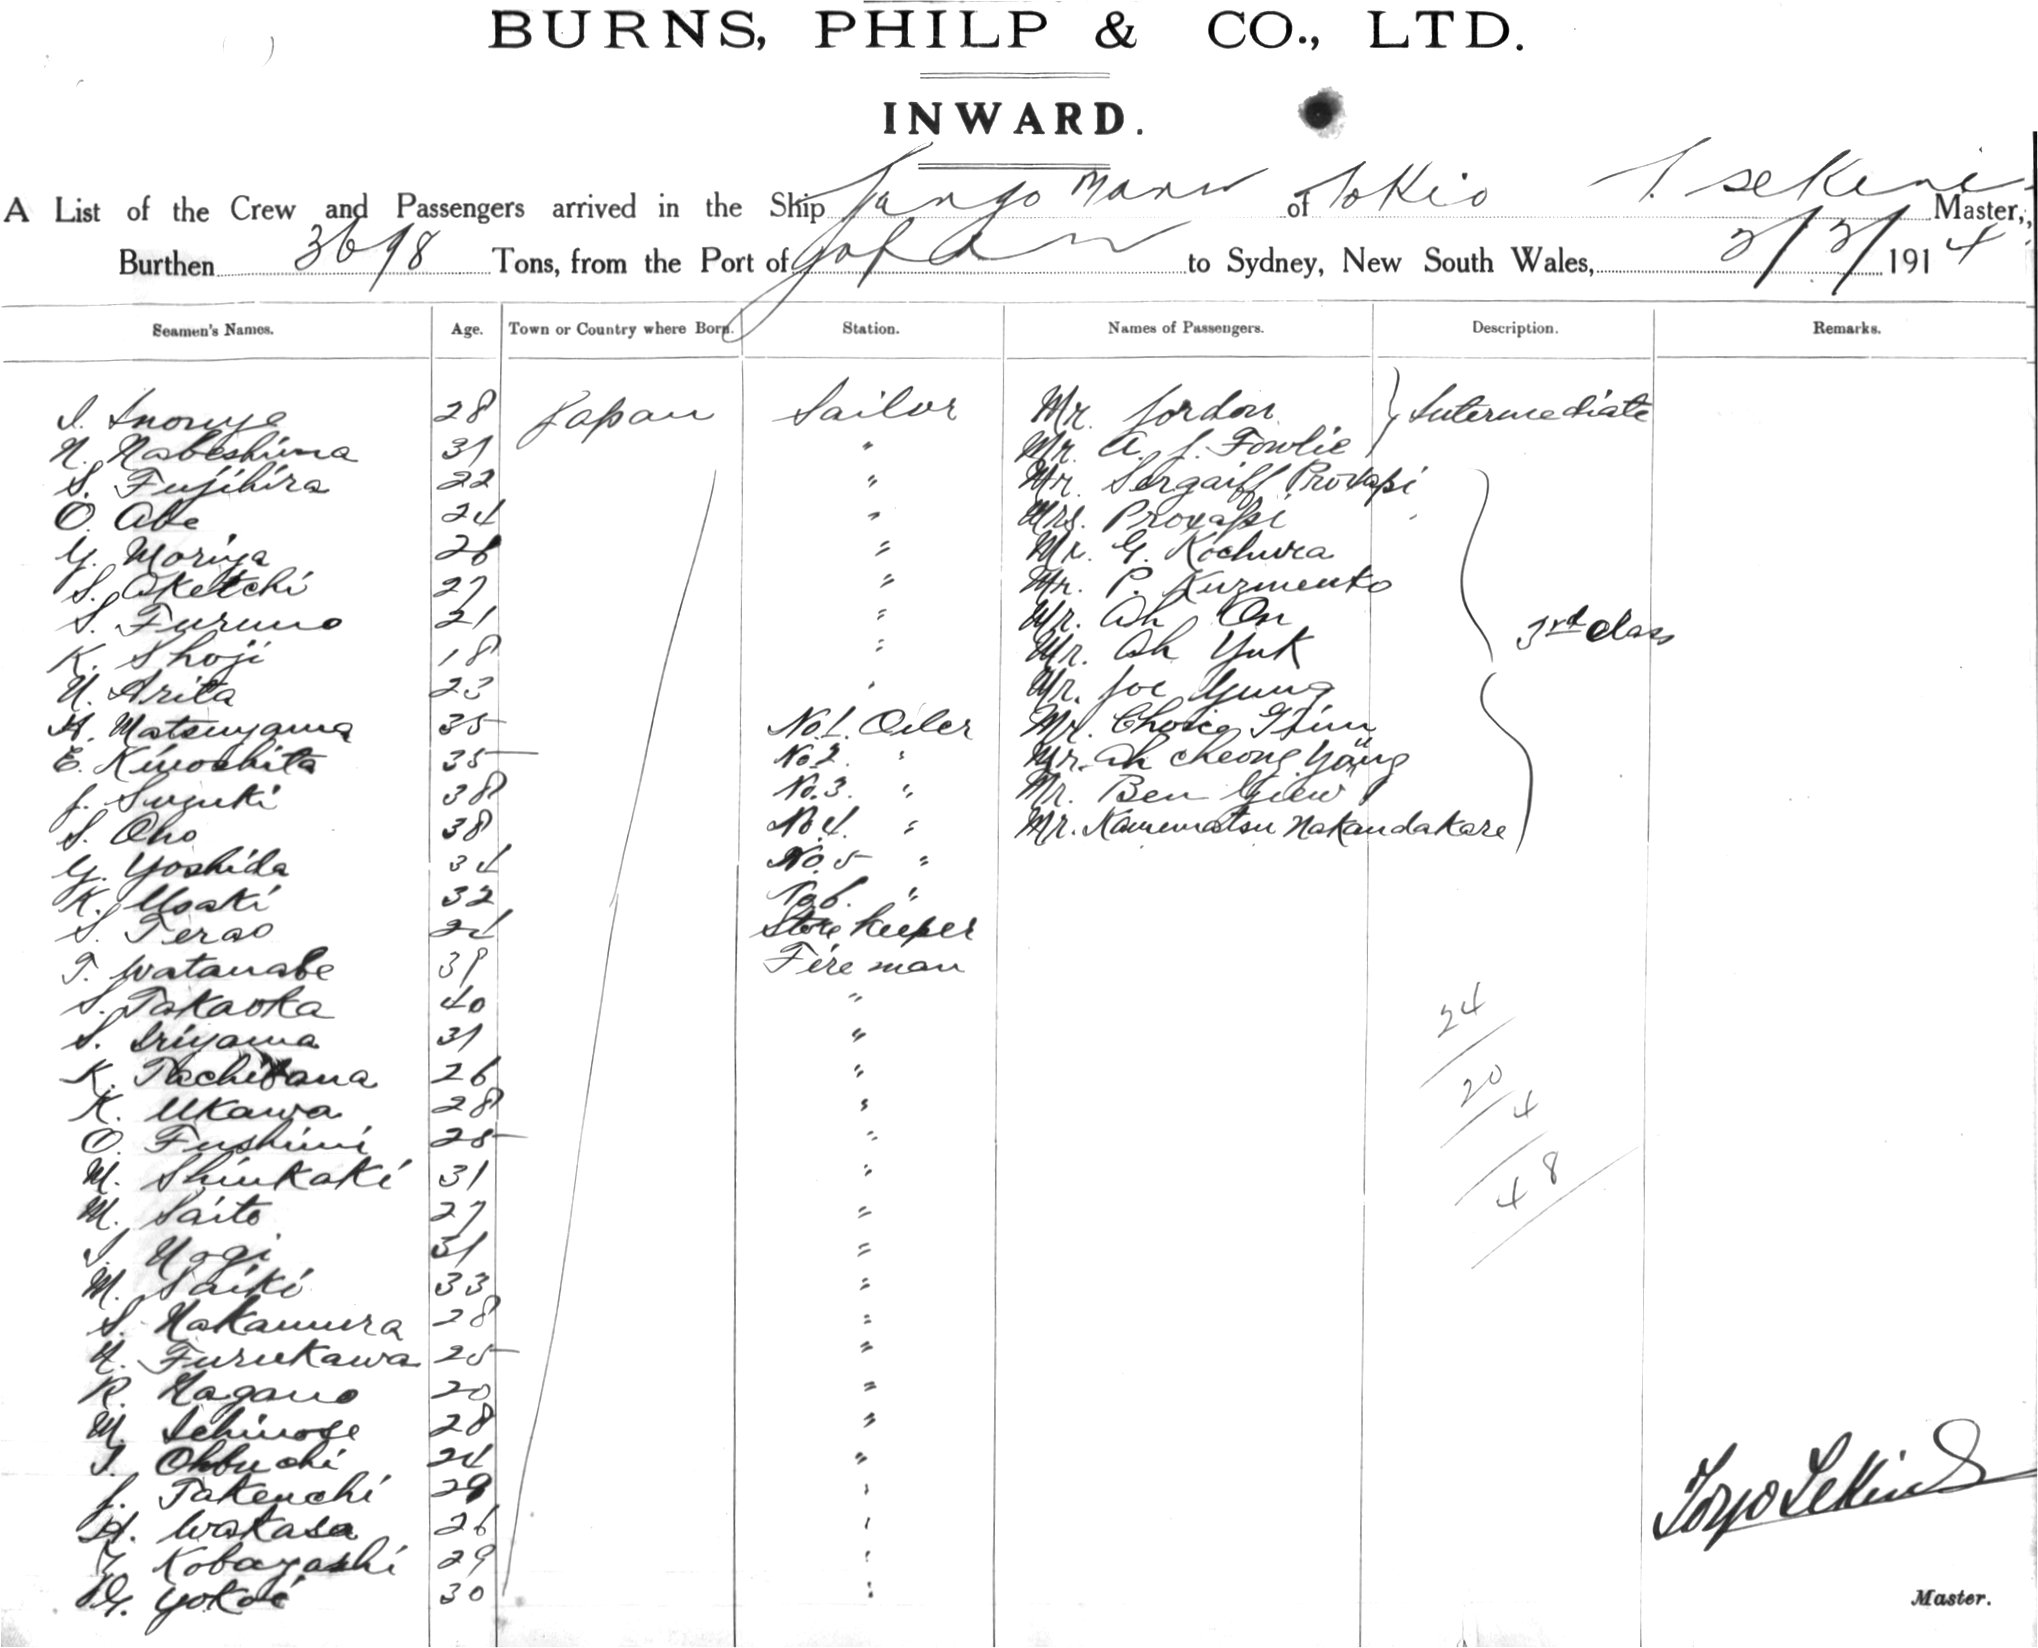 BURNS, PHILP & CO., LTD.
INWARD.
A List of the Crew and Passengers arrived in the Ship Tango Maru of Tokio T. Sekine Master,
Burthen 3698 Tons, from the Port of Japan to Sydney, New South Wales, 2/2/1914
Seamen's Names. Age. Town or Country where Born. Station. Names of Passengers. Description. Remarks.
I. Inouye 28 Japan Sailor Mr. Jordon Intermediate
N. Nabeshima 31 " Mr. A. J. Fowlie
S. Fujihira 22 " Mr. Sergaiff
O. Abe 24 " Mrs.
Y. Moriya 26 " Mr. G. Kochura
S. Aketchi 27 " Mr. P. Kuzmenko
S. Furuno 21 " Mr. Ah On 3rd class
K. Shoji 18 " Mr. Ah Yuk
N. Arita 23 " Mr. Joe Gung
H. Matsuyama 35 No.1. Oiler Mr. Choice
E. Kinoshita 35 No.2. " Mr. Ah Cheong Yöung
J. Suzuki 38 No.3. " Mr. Ben
S. Oho 38 No 4. " Mr. Kamematsu Nakandakare
Y. Yoshida 34 No. 5 "
K. Usaki 32 No 6. "
S. Terao 24 Store keeper
T. Watanabe 39 Fire man
S. Takaoka 40 "
S. Iriyama 31 " 24
K. Tachibana 26 " 20
K. Ukawa 28 " 4
O. Fushimi 25 "
M. Shinkaki 31 " 48
M. Saito 27 "
Nogi 31 "
M. Saiki 33 "
S. Nakamura 28 "
N. Furukawa 25 "
R. Nagano 20 "
M. Ichinose 28 "
I. Ohbuchi 24 "
J. Takeuchi 29 "
H. Wakasa 26 " Toryo Sekine
Kobayashi 29 "
Yokoi 30 " Master.